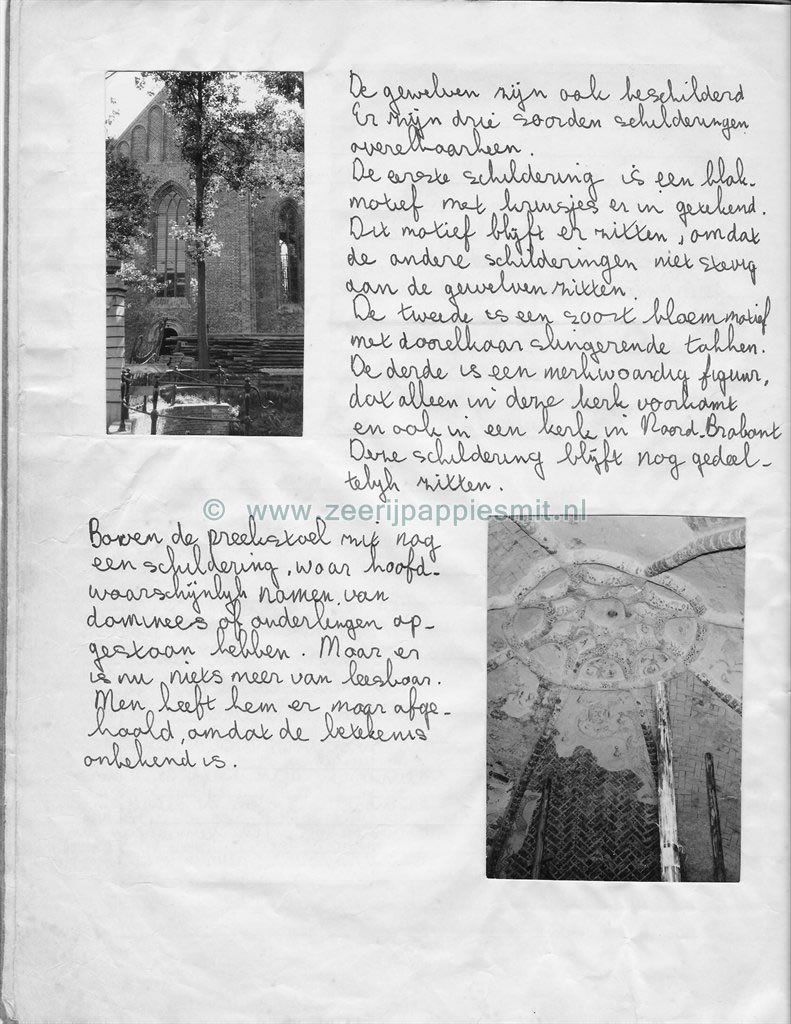 De gewelven zijn ook beschilderd
Er zijn drie soorden schilderingen
overelkaarheen.
De eerste schildering is een blok-
motief met kruisjes er in getekend.
Dit motief blijft er zitten, omdat
de andere schilderingen niet stevig
aan de gewelven zitten.
De tweede is een soort bloemmotief
met doorelkaar slingerende takken.
De derde is een merkwaardig figuur,
dat alleen in deze kerk voorkomt
en ook in een kerk in Noord-Brabant
Deze schildering blijft nog gedeel-
telijk zitten.
© www.zeerijpappiesmit.nl
Boven de preekstoel zit nog
een schildering, waar hoofd-
waarschijnlijk namen van
dominees of ouderlingen op-
gestaan hebben. Maar er
is nu niets meer van leesbaar.
Men heeft hem er maar afge-
haald, omdat de betekenis
onbekend is.